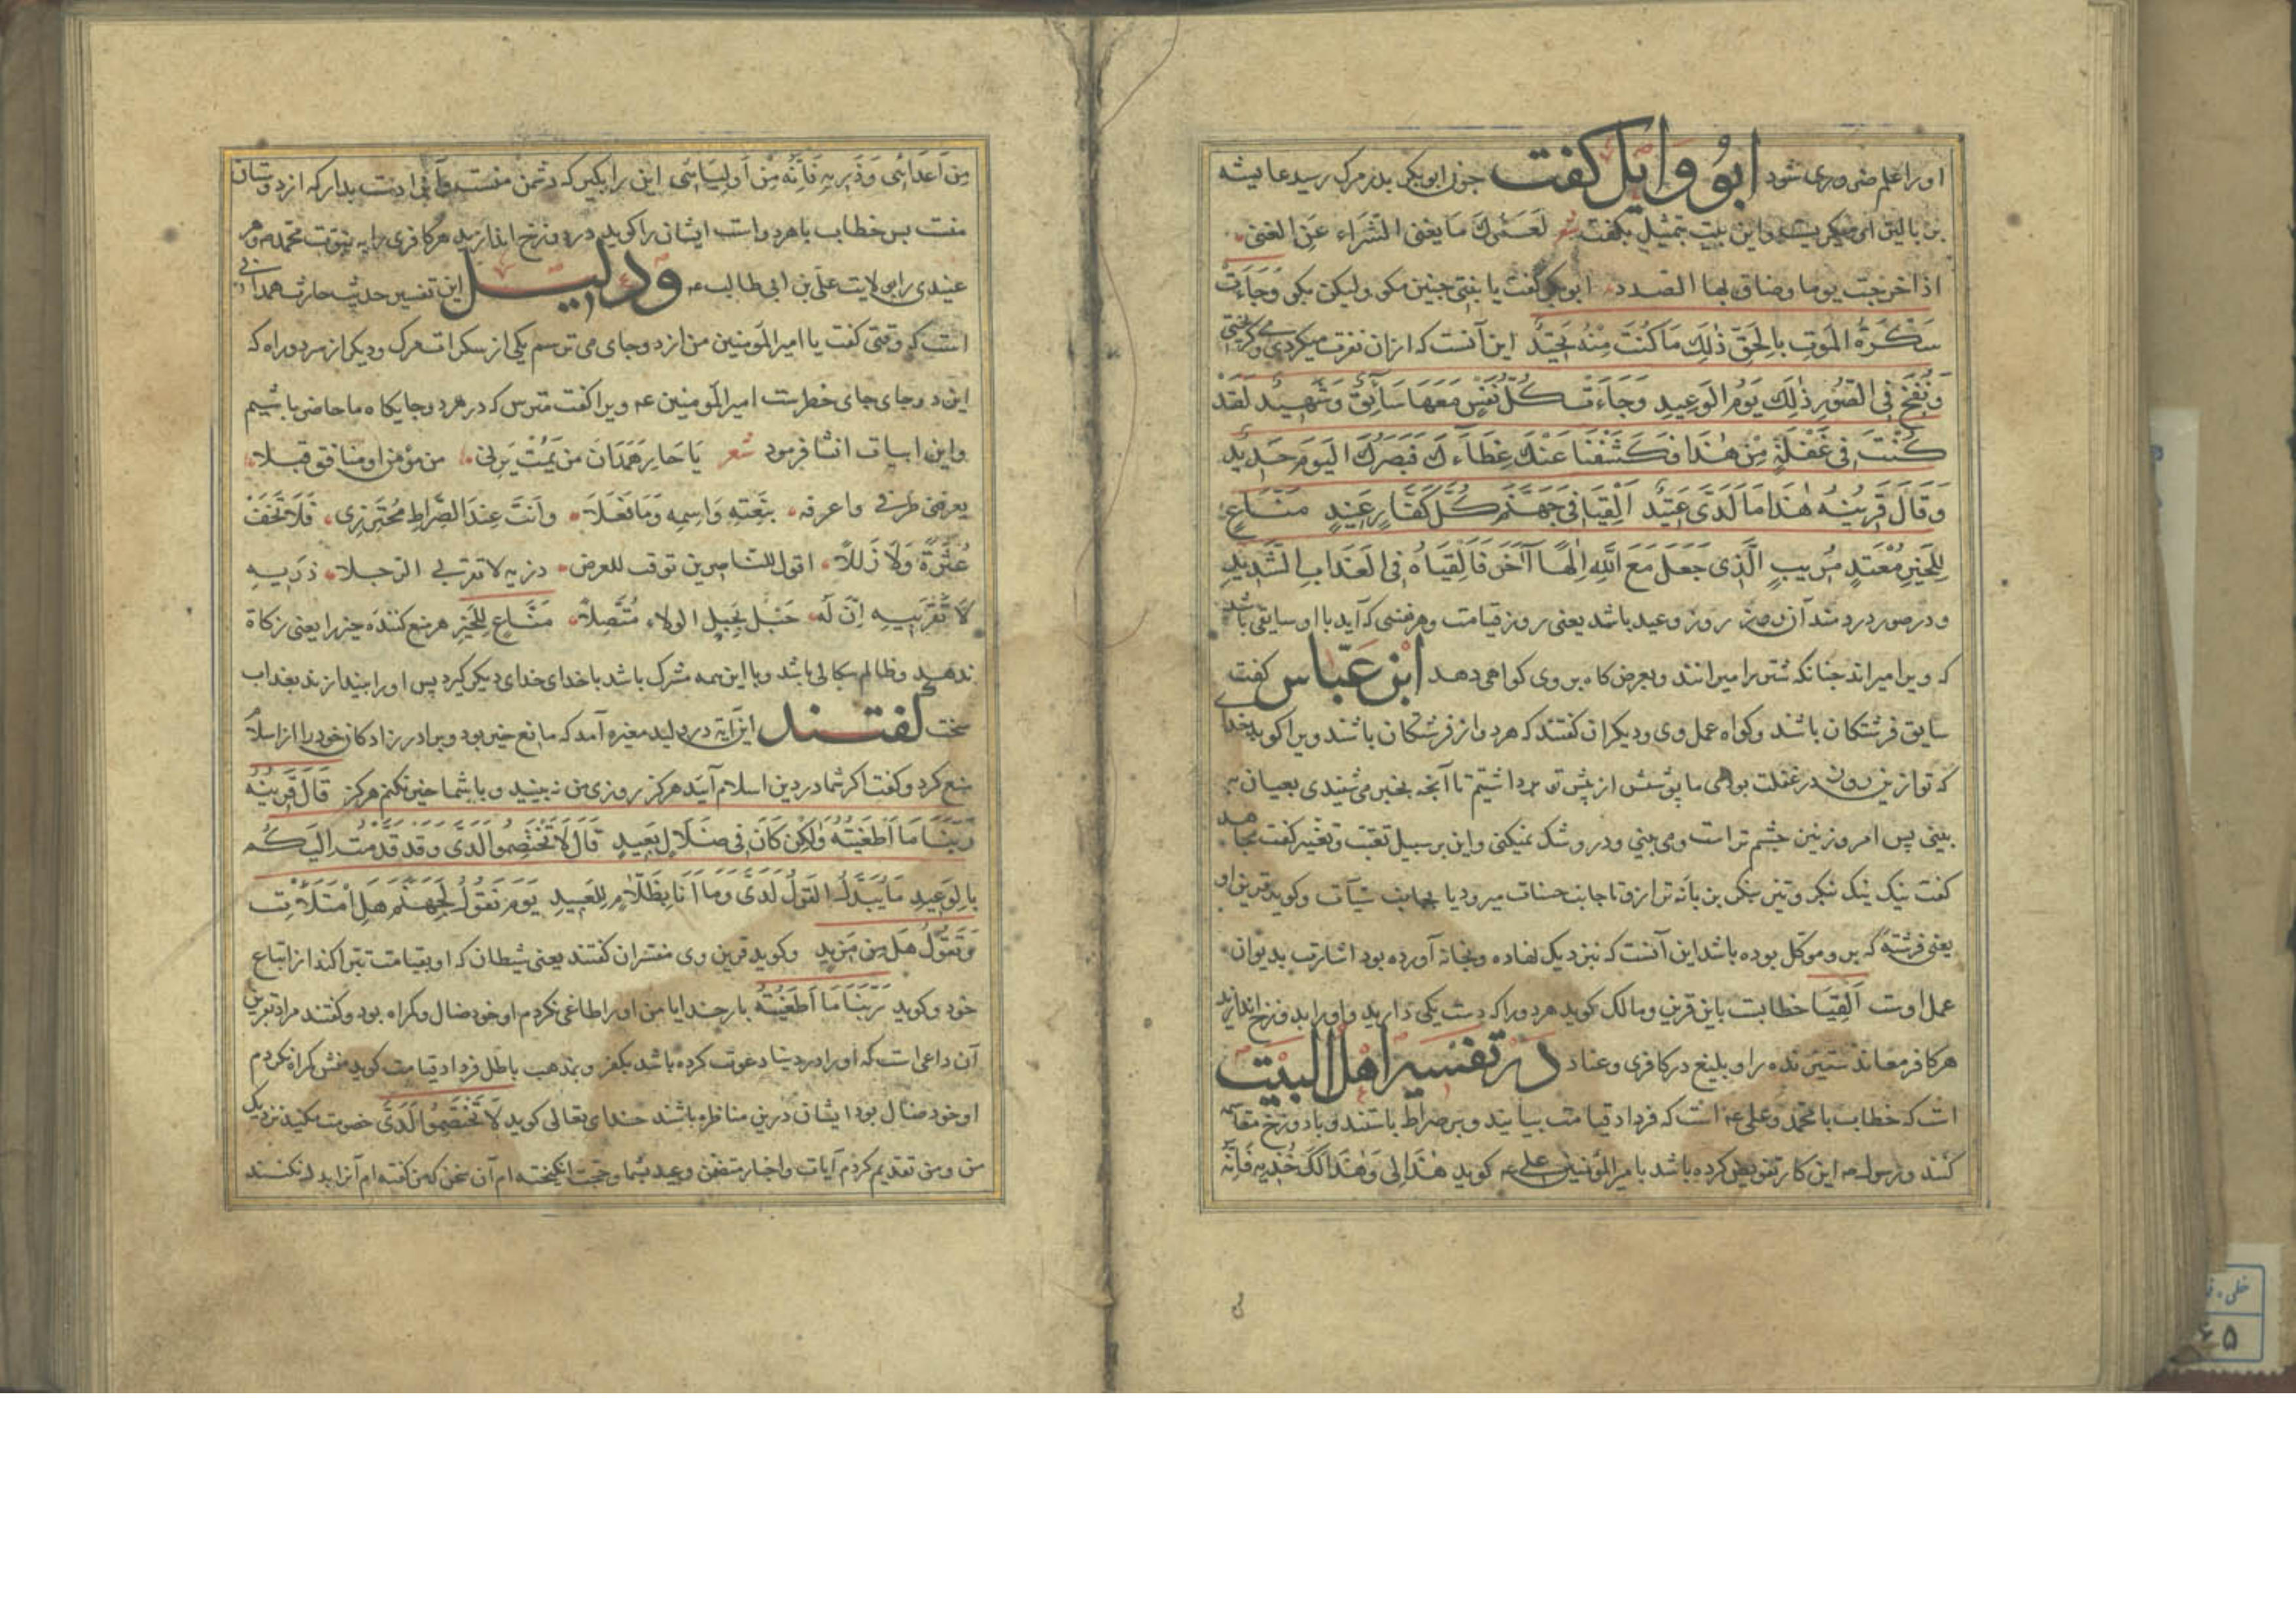 او را علم ضروری شود ابو وایل گفت جون ابوبکر بدر مرک رسید عایشه
بن بالین او میکریست و این بیت بتمثل بگفت شعر لَعَمْرُكَ مَا یغنی الثَراء عَنِ الغنی
اذا خرجت یوما وضاق بها الصدد ابوبکر کفت یا بنتی جنین مکو ولیکن بکو وَجَاءَت
سَكْرَةُ المَوتِ بِالحَقِّ ذٰلِكَ مَا كُنتَ مِنْهُ تَحِيدُ این آنست که ازان نفرت میکردی و میکریختی
وَنُفِخَ فِی الصُّورِ ذٰلِكَ يَوْمُ الوَعِيدِ وَجَاءَت كُلُّ نَفْسٍ مَعَهَا سَآئِقٌ وَشَهِيدٌ لَقَدْ
كُنْتَ فِی غَفْلَةٍ مِنْ هٰذَا فَكَشَفْنَا عَنْكَ غِطَاءَكَ فَبَصَرُكَ اليَومَ حَدِيدٌ
وَقَالَ قَرِينُهُ هٰذَا مَا لَدَیَّ عَتِيدٌ اَلْقِيَا فِی جَهَنَّمَ كُلَّ كَفَّارٍ عَنِيدٍ مَنَّاعٍ
لِلْخَيْرِ مُعْتَدٍ مُرِيبٍ الَّذِی جَعَلَ مَعَ اللّٰهِ اِلٰهًا آخَرَ فَاَلْقِيَاهُ فِی العَذَابِ الشَّدِيدِ
و در صور دردمند آن روز روز وعید باشد یعنی روز قیامت و هر نفسی که آید با او سایقی باشد
که ویرا میراند جنانکه شتر را میرانند و بعرض کاه بروی کواهی دهد ابن عَبّاس کفت
سایق فرشتکان باشند و کواه عمل وی و دیکران کفتند که هردو از فرشتکان باشند ویرا کویند بخدا
که تو ازین روز در غفلت بودی ما پوشش از پیش تو برداشتیم تا آنجه بخبر می شنیدی بعیان می
بینی پس امروز تیز جشم تر است و می بینی و در و شک نمیکنی و این بر سبیل تعنت و تغییر کفت مجاهد
کفت نیک نیک نیکر و تیز نیکر بن بانه ترازو تا جانب حسنات میرود یا بجانب سیآت و کوید قرین او
یعنی فرشتهٔ که برو موکل بوده باشد این آنست که نبزدیک نهاده و بخانه آورده بود اشارت بدیوان
عمل اوست اَلْقِيَا خطابست باین قرین و مالک کوید هر دو را که دست یکی دارید و او را بدوزخ اندازید
هر کافر معاند ستیزنده را و بلیغ در کافری و عناد در تفسیر اهل البیت
است که خطاب با محمد و علی عم است که فردا در قیامت بیایند و بر صراط باستند و با دوزخ مقاسمه
کنند و رسول عم این کار تفویض کرده باشد بامیر المؤمنین علی عم کوید هٰذَا لِی وَهٰذَا لَكَ خُذِیهِ فَاِنَّهُ
مِن اَعدَائی وَذَرِیهِ فَاِنَّهُ مِن اَولِیَائی این را بکیر که دشمن منست و آن را دست بدار که از دوستان
منست بس خطاب با هردو است ایشان را کوید در دوزخ اندازید هر کافری را به نبوت محمد م و هر
عنیدی را بولایت علی بن ابی طالب عم ودلیل این تفسیر حدیث حارث همدانی
است که وقتی کفت یا امیر المومنین من از دو جای می ترسم یکی از سکرات مرک و دیکر از سر دو راه که
این دو جای جای خطر است امیر المومنین عم ویرا کفت مترس که در هر دو جایکاه ما حاضر باشیم
و این ابیات انشا فرمود شعر یَا حَارِ هَمْدَانَ مَن یَمُتْ یَرَنِی من مؤمن او منافق قبلا
یعرفنی طرفه واعرفه بِنَعْتِهِ وَاسمِهِ وَمَا فَعَلَا وَاَنتَ عِندَ الصِّرَاطِ مُعْتَرِضِی فَلَا تَخَفْ
عُثْرَةً وَلَا زَلَلًا اقول للنار حین توقف للعرض ذریه لا تقربی الرجلا ذَرِیهِ
لَا تَقْرَبِیهِ اِنَّ لَه حَبْل بِحَبلِ الولاء مُتَّصِلًا مَنَّاعٍ لِلخَیرِ هر منع کننده خیر را یعنی زکاة
ندهد و ظالم سکالی باشد و با این همه مشرک باشد با خدای خدای دیکر کیرد پس او را بیندازند بعذاب
سخت کفتند این آیه در ولید مغیره آمد که مانع خیر بود و برادر زادکان خود را از اسلام
منع کرد و کفت اکر شما در دین اسلام آیید هرکز روزی من نه بینید و با شما خیر نکنم هرکز قَالَ قَرِینُهُ
رَبَّنَا مَا اَطْغَیْتُهُ وَلٰكِن كَانَ فِی ضَلَالٍ بَعِیدٍ قَالَ لَا تَخْتَصِمُوا لَدَیَّ وَقَد قَدَّمْتُ اِلَیكُم
بِالوَعِیدِ مَا یُبَدَّلُ القَولُ لَدَیَّ وَمَا اَنَا بِظَلَّامٍ لِلعَبِیدِ یَومَ نَقُولُ لِجَهَنَّمَ هَلِ امْتَلَأْتِ
وَتَقُولُ هَل مِن مَزِیدٍ و کوید قرین وی مفسران کفتند یعنی شیطان که او بقیامت تبرا کند از اتباع
خود و کوید رَبَّنَا مَا اَطْغَیْتُهُ بار خدایا من او را طاغی نکردم او خود ضال و کمراه بود و کفتند مراد بقرین
آن داعی است که او را در دنیا دعوت کرده باشد بکفر و بمذهب باطل فردا در قیامت کوید منش کمراه نکردم
او خود ضال بود ایشان درین مناظره باشند خدای تعالی کوید لَا تَخْتَصِمُوا لَدَیَّ خصومت مکنید نزدیک
من و من تقدیم کردم آیات و اخبار متضمن وعید بشما و حجت انکیخته ام آن سخن که من کفته ام آنرا بدل نکنند